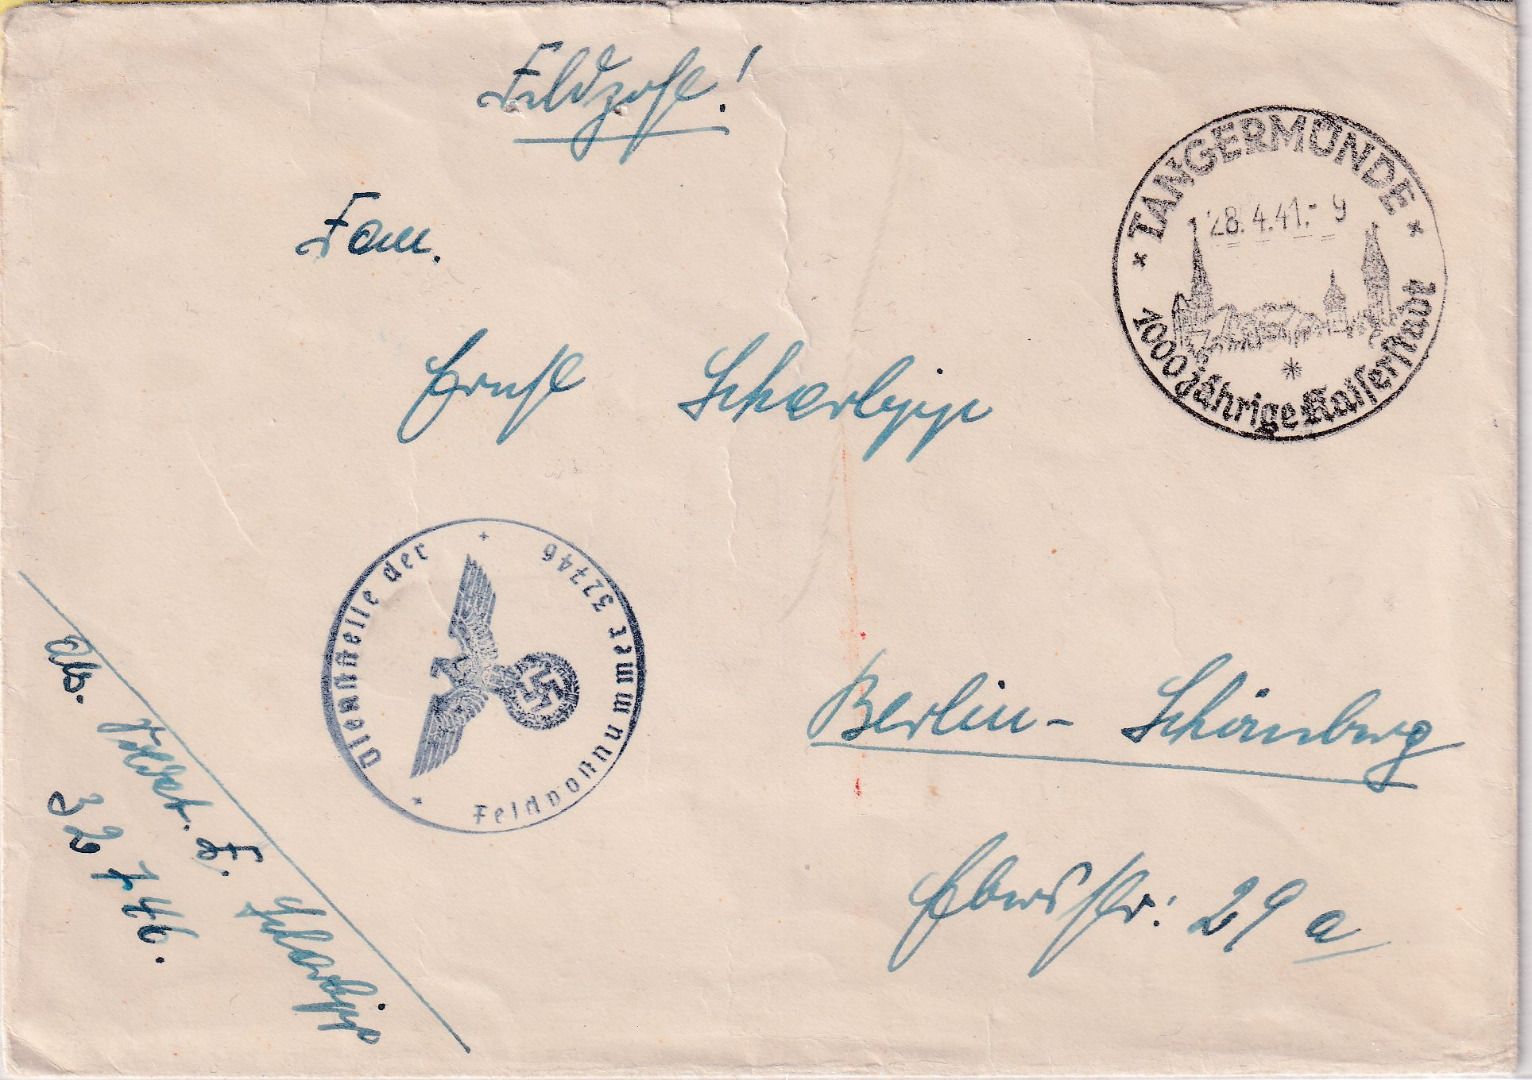 Feldpost!
TANGERMÜNDE
28.4.41.- 9
1000jährige Kaiserstadt
Fam.
Ernst Scharlipp
Dienststelle der
Feldpostnummer 32746
Berlin- Schöneberg
Ebersstr: 29 a
Abs. Soldat. E. Scharlipp
32 746.